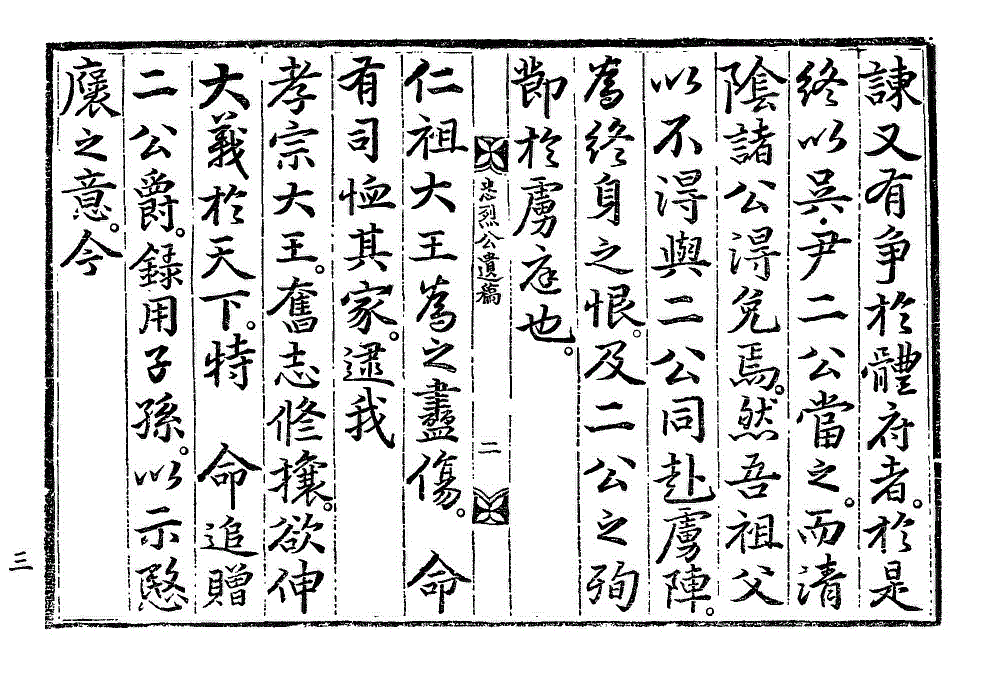 諫又有爭於體府者。於是
終以吳·尹二公當之。而淸
陰諸公得免焉。然吾祖父
以不得與二公同赴虜陣。
爲終身之恨。及二公之殉
節於虜庭也。
忠烈公遺稿
二
仁祖大王爲之盡傷。 命
有司恤其家。逮我
孝宗大王。奮志修攘。欲伸
大義於天下。特 命追贈
二公爵。錄用子孫。以示愍
褒之意。今
三